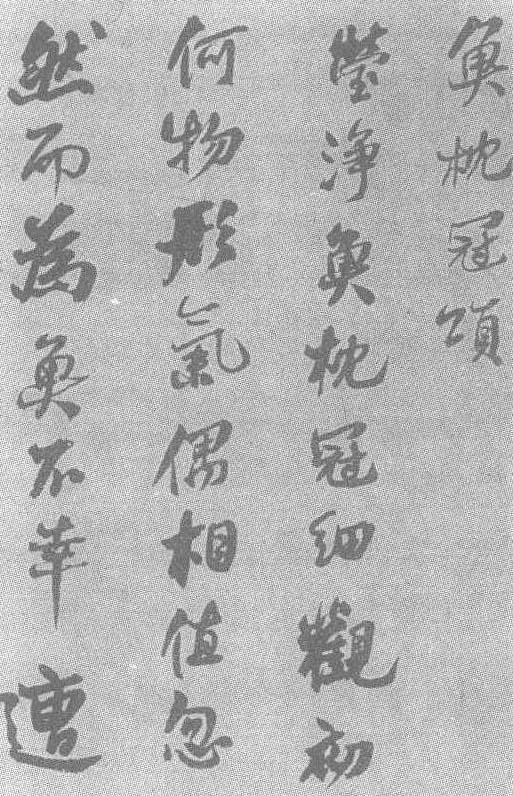 魚枕冠頌
瑩淨魚枕冠細觀初
何物形氣偶相值忽
然而為魚不幸遭